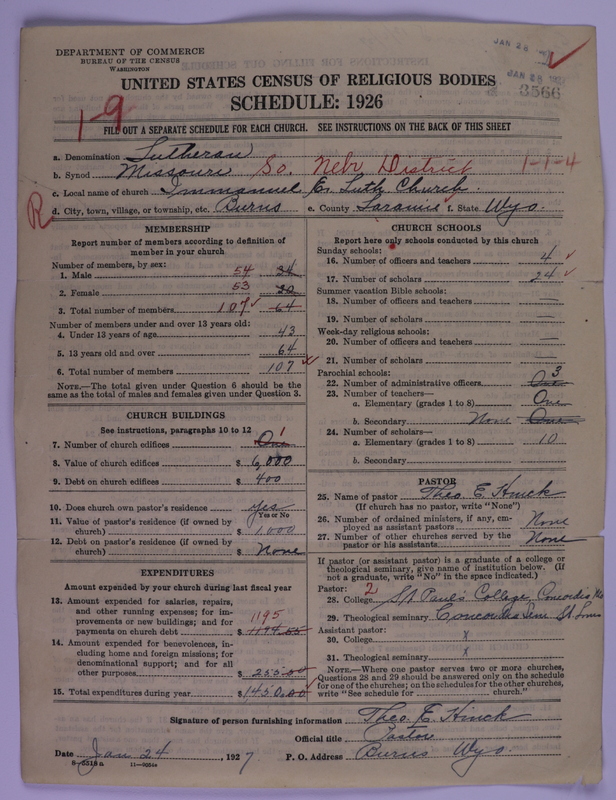 DEPARTMENT OF COMMERCE
BUREAU OF THE CENSUS
WASHINGTON
JAN 26
JAN 26
3566
UNITED STATES CENSUS OF RELIGIOUS BODIES
SCHEDULE: 1926
1-9
FILL OUT A SEPARATE SCHEDULE FOR EACH CHURCH. SEE INSTRUCTIONS ON THE BACK OF THIS SHEET
a. Denomination Lutheran
b. Synod Missouri So. Nebr District 1-1-4
c. Local name of church Immanuel Ev. Luth Church.
R
d. City, town, village, or township, etc. Burns e. County Laramie f. State Wyo.
MEMBERSHIP
Report number of members according to definition of
member in your church
Number of members, by sex:
1. Male 54 34
2. Female 53 30
3. Total number of members 107 64
Number of members under and over 13 years old:
4. Under 13 years of age 43
5. 13 years old and over 64
6. Total number of members 107
NOTE.—The total given under Question 6 should be the
same as the total of males and females given under Question 3.
CHURCH BUILDINGS
See instructions, paragraphs 10 to 12
7. Number of church edifices One 1
8. Value of church edifices $ 6,000
9. Debt on church edifices $ 400
10. Does church own pastor's residence yes
Yes or No
11. Value of pastor's residence (if owned by
church) $ 1,000
12. Debt on pastor's residence (if owned by
church) $ None
EXPENDITURES
Amount expended by your church during last fiscal year
13. Amount expended for salaries, repairs,
and other running expenses; for im-
provements or new buildings; and for
payments on church debt $ 1195
14. Amount expended for benevolences, in-
cluding home and foreign missions; for
denominational support; and for all
other purposes $ 255.00
15. Total expenditures during year $ 1450.00
CHURCH SCHOOLS
Report here only schools conducted by this church
Sunday schools:
16. Number of officers and teachers 4
17. Number of scholars 24
Summer vacation Bible schools:
18. Number of officers and teachers —
19. Number of scholars —
Week-day religious schools:
20. Number of officers and teachers —
21. Number of scholars —
Parochial schools:
22. Number of administrative officers One 3
23. Number of teachers—
a. Elementary (grades 1 to 8) One
b. Secondary None One
24. Number of scholars—
a. Elementary (grades 1 to 8) 10
b. Secondary
PASTOR
25. Name of pastor Theo. E. Hinck
(If church has no pastor, write "None")
26. Number of ordained ministers, if any, em-
ployed as assistant pastors None
27. Number of other churches served by the
pastor or his assistants None
If pastor (or assistant pastor) is a graduate of a college or
theological seminary, give name of institution below. (If
not a graduate, write "No" in the space indicated.)
Pastor: 2
28. College St. Paul's College, Concordia Mo
29. Theological seminary Concordia Sem. St. Louis
Assistant pastor:
30. College x
31. Theological seminary x
NOTE.—Where one pastor serves two or more churches,
Questions 28 and 29 should be answered only on the schedule
for one of the churches; on the schedules for the other churches,
write "See schedule for church."
Signature of person furnishing information Theo. E. Hinck
Official title Pastor
Date Jan 24, 1927 P. O. Address Burns Wyo.
8-5518a 11-9054a